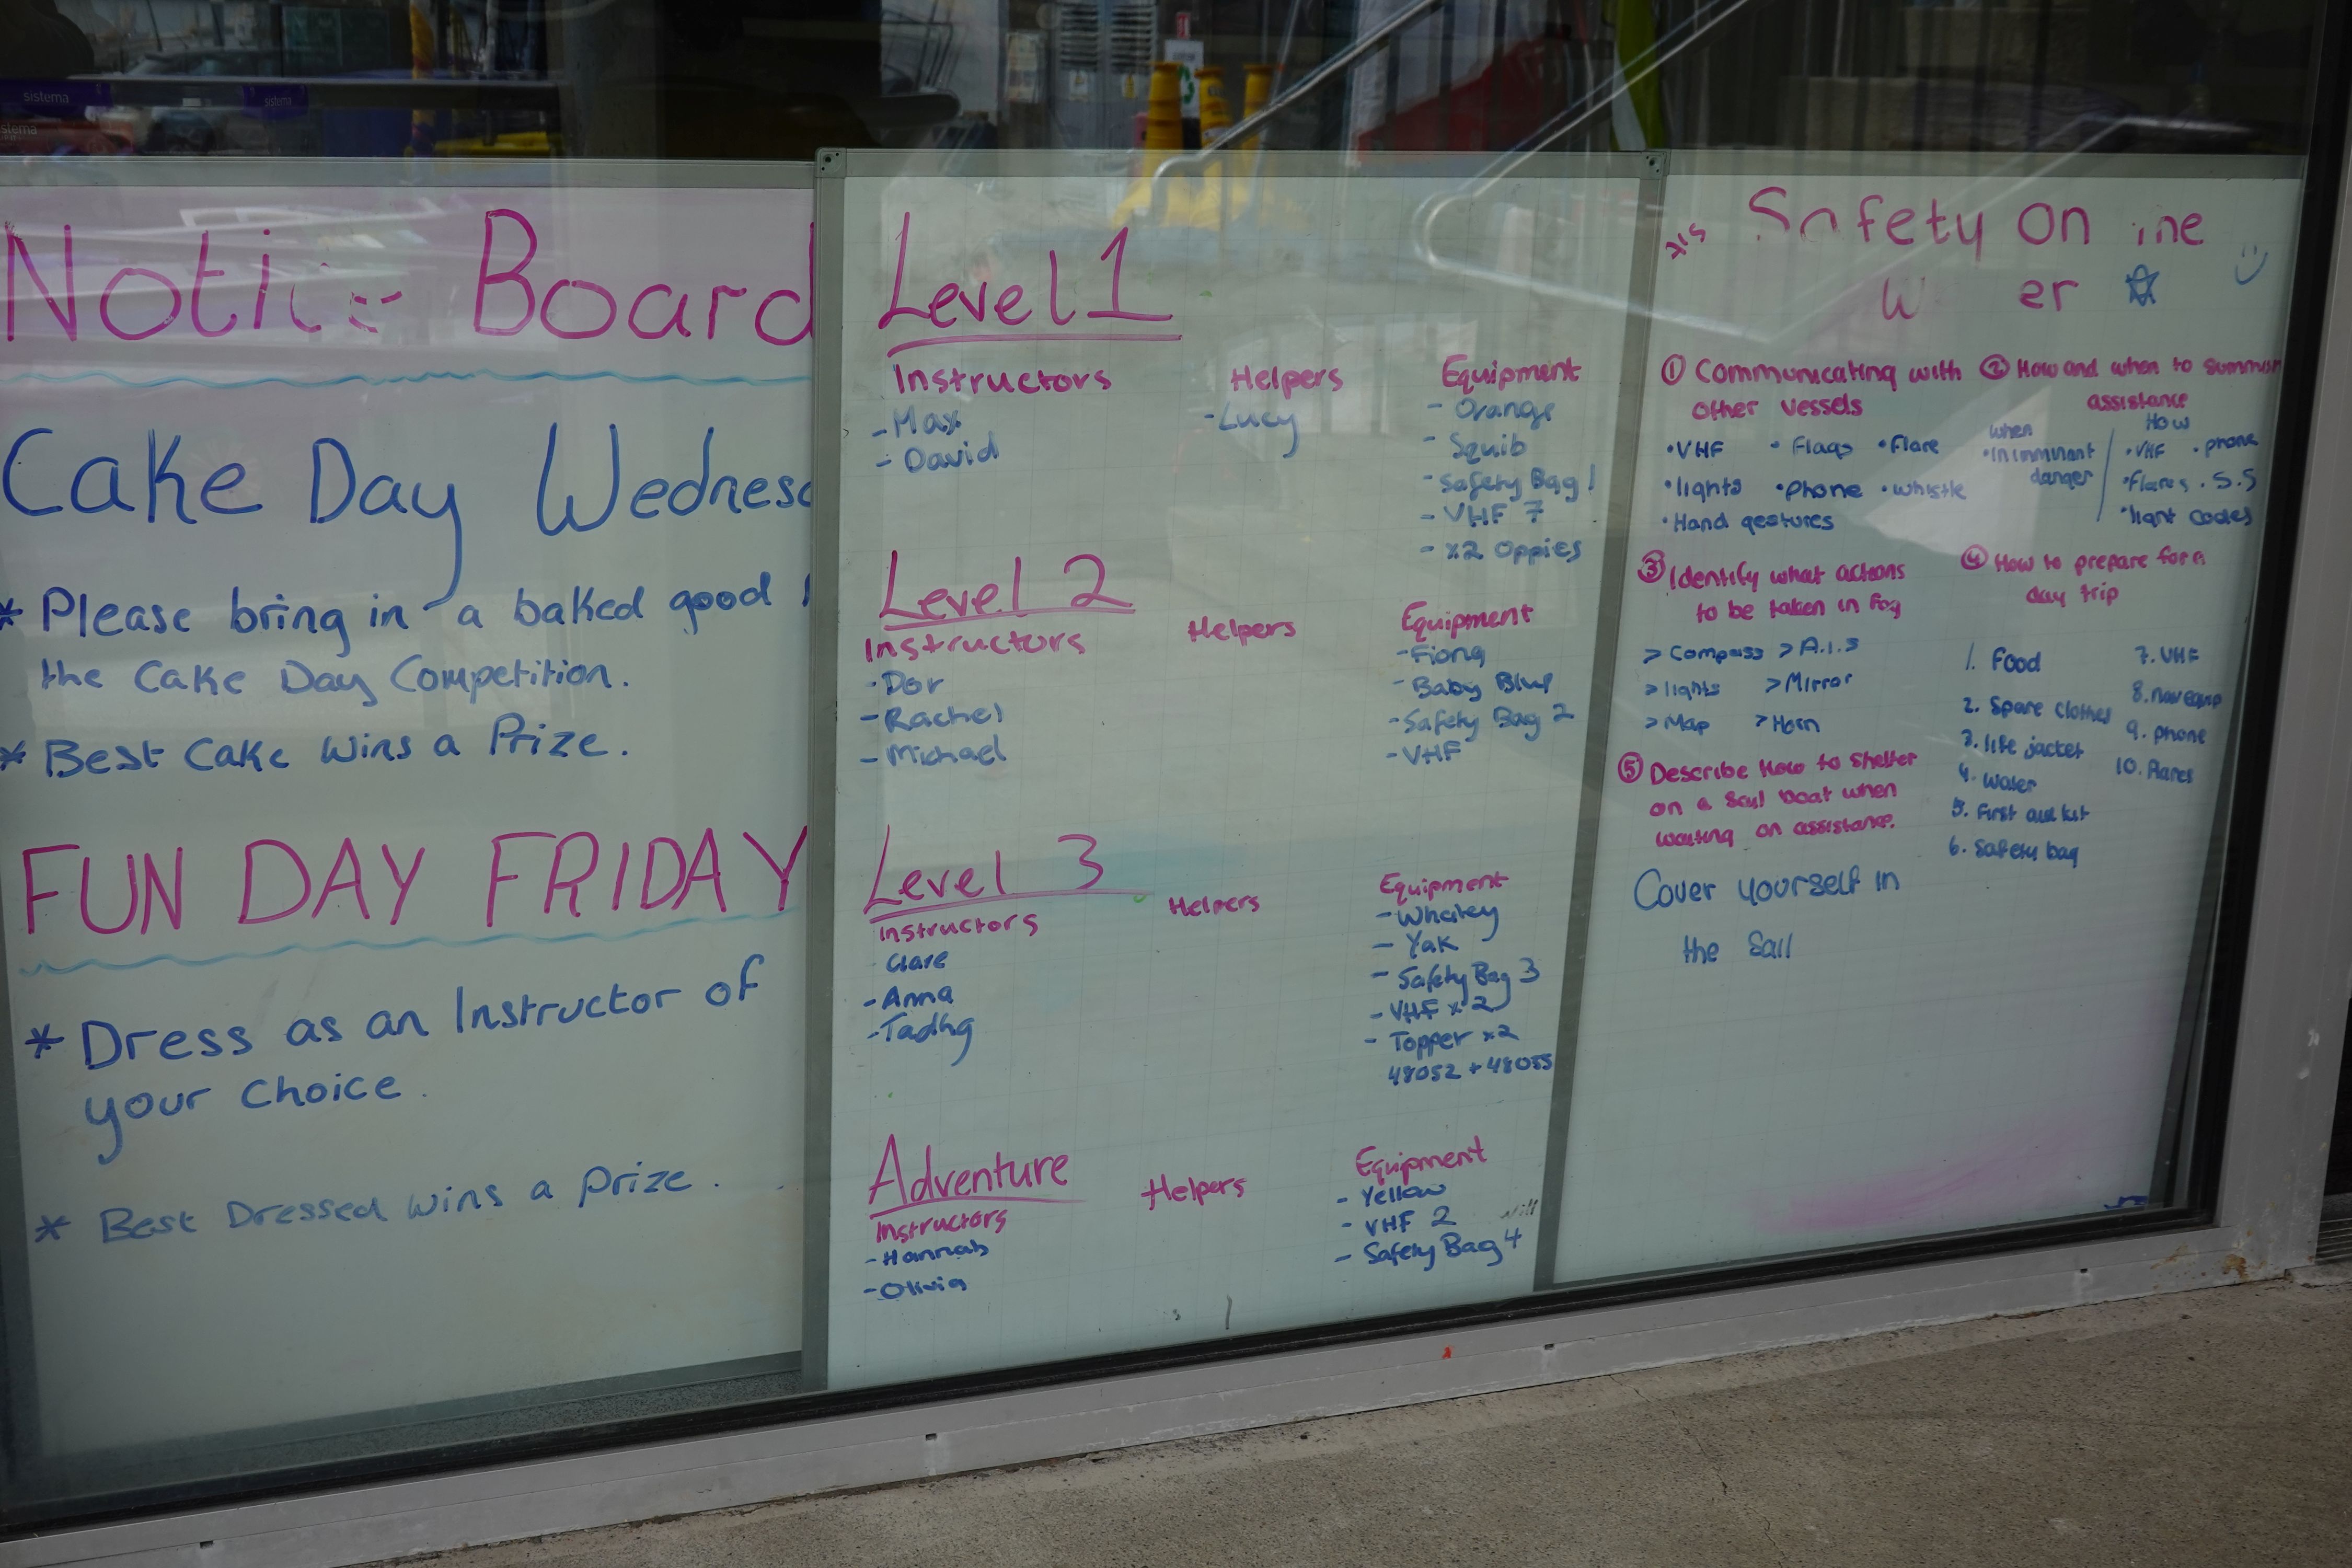 sistema
sistema
stema
Notice Board
Cake Day Wednesd
* Please bring in a baked good
the Cake Day Competition.
* Best Cake Wins a Prize.
FUN DAY FRIDAY
* Dress as an Instructor of
your choice.
* Best Dressed wins a prize.
Level 1
Instructors Helpers Equipment
- Max - Lucy - Orange
- David - Squib
- Safety Bag 1
- VHF 7
- x2 Oppies
Level 2
Instructors Helpers Equipment
- Dor - Fiona
- Rachel - Baby Blue
- Michael - Safety Bag 2
- VHF
Level 3
Instructors Helpers Equipment
Clare - Whaley
- Anna - Yak
- Tadhg - Safety Bag 3
- VHF x 2
- Topper x2
48052 + 48055
Adventure
Instructors Helpers Equipment
- Hannah - Yellow
- Olivia - VHF 2
- Safety Bag 4
Safety On the
W er
① Communicating with
other vessels
• VHF • Flags • Flare
• lights • phone • whistle
• Hand gestures
② How and when to summon
assistance
when How
• In imminant • VHF • phone
danger • Flares • S.S
• light codes
③ Identify what actions
to be taken in fog
> Compass > A.I.S
> lights > Mirror
> Map > Horn
④ How to prepare for a
day trip
1. Food 7. VHF
2. Spare clothes 8.
3. life jacket 9. phone
4. Water 10. Flares
5. First aid kit
6. Safety bag
⑤ Describe how to shelter
on a sail boat when
waiting on assistance.
Cover yourself in
the sail